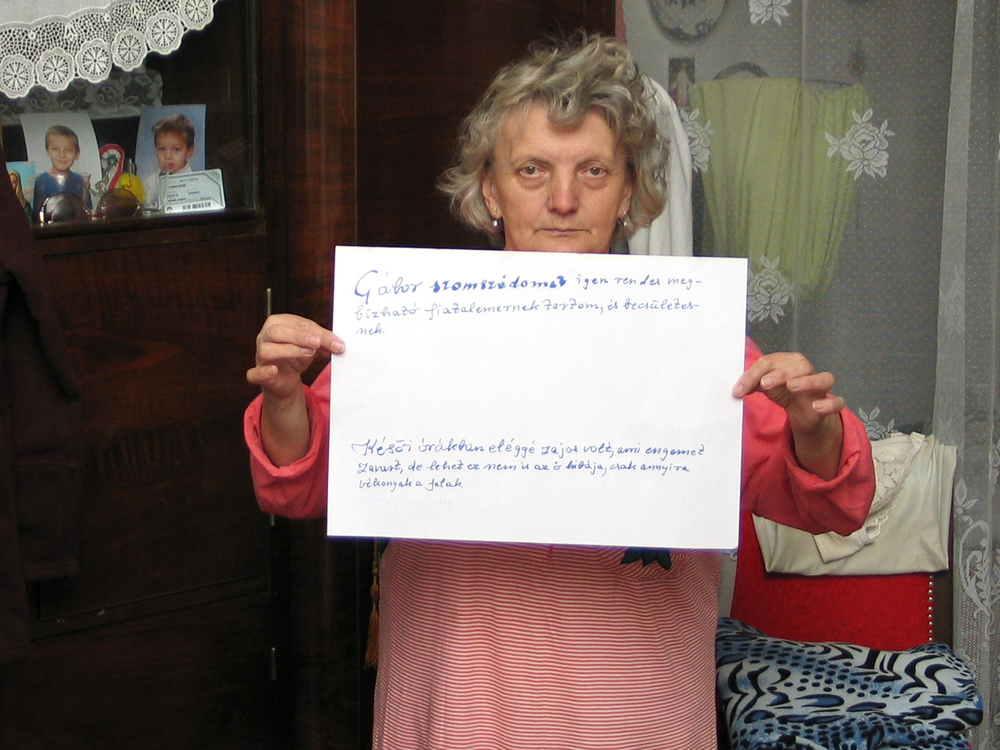 Gábor szomszédomat igen rendes meg-
bízható fiatalembernek tartom, és becsületes-
nek.
Késői órákban eléggé zajos volt, ami engemet
zavart, de lehet ez nem is az ő hibája, csak annyira
vékonyak a falak